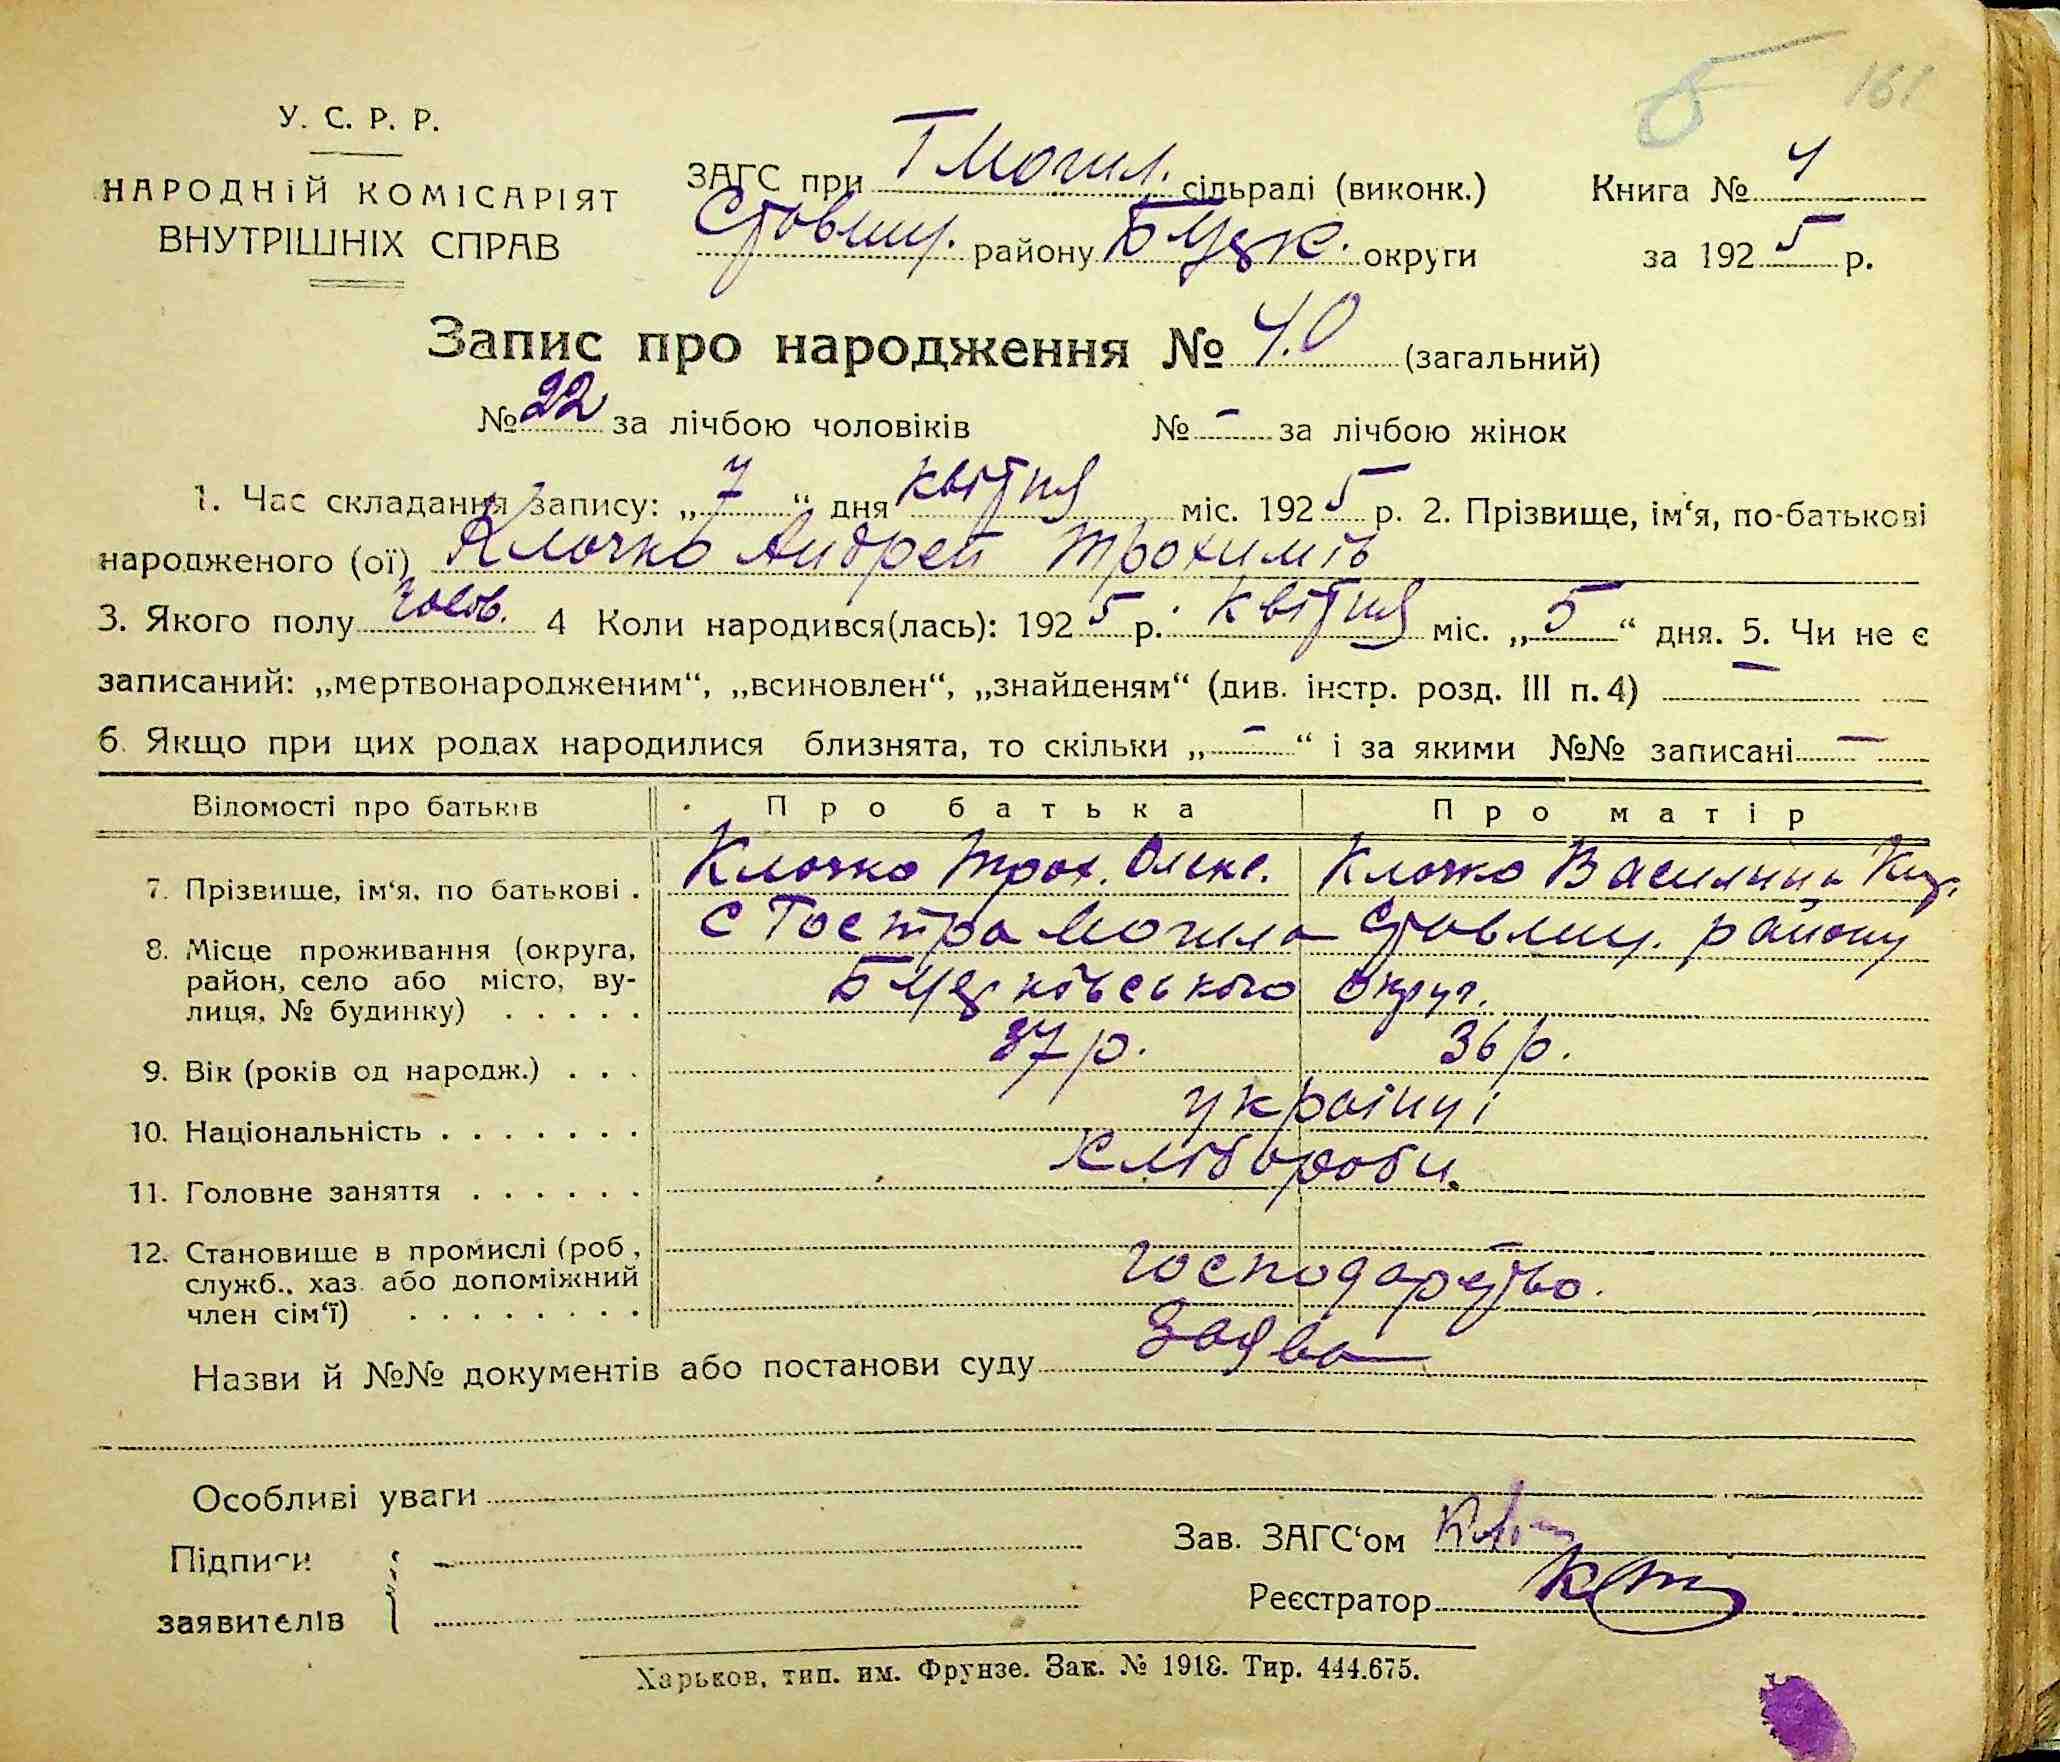 161
У. С. Р. Р.
НАРОДНІЙ КОМІСАРІЯТ
ВНУТРІШНІХ СПРАВ
ЗАГС при Г Могил. сільраді (виконк.)
Ставищ. району Б Церк. округи
Книга № 4
за 1925 р.
Запис про народження № 40 (загальний)
№ 22 за лічбою чоловіків № – за лічбою жінок
1. Час складання запису: „7“ дня квітня міс. 1925 р. 2. Прізвище, ім‘я, по-батькові
народженого (ої) Клочко Андрей Трохимів
3. Якого полу чолов. 4 Коли народився(лась): 1925 р. квітня міс. „5“ дня. 5. Чи не є
записаний: „мертвонародженим“, „всиновлен“, „знайденям“ (див. інстр. розд. III п. 4) –
6. Якщо при цих родах народилися близнята, то скільки „–“ і за якими №№ записані –
Відомості про батьків Про батька Про матір
7. Прізвище, ім‘я, по батькові . Клочко Трох. Олекс. Клочко Василина
8. Місце проживання (округа, с Гостра Могила Ставищ. району
район, село або місто, ву- Б Церківського Округ.
лиця, № будинку) . . . . .
9. Вік (років од народж.) . . . 37 р. 36 р.
10. Національність . . . . . . . українці
11. Головне заняття . . . . . . Хлібороби.
12. Становище в промислі (роб.,
служб., хаз. або допоміжний господарство.
член сім‘ї) . . . . . . . .
Назви й №№ документів або постанови суду Заява
Особливі уваги
Підписи
заявителів
Зав. ЗАГС‘ом
Реєстратор
Харьков, тип. им. Фрунзе. Зак. № 1918. Тир. 444.675.